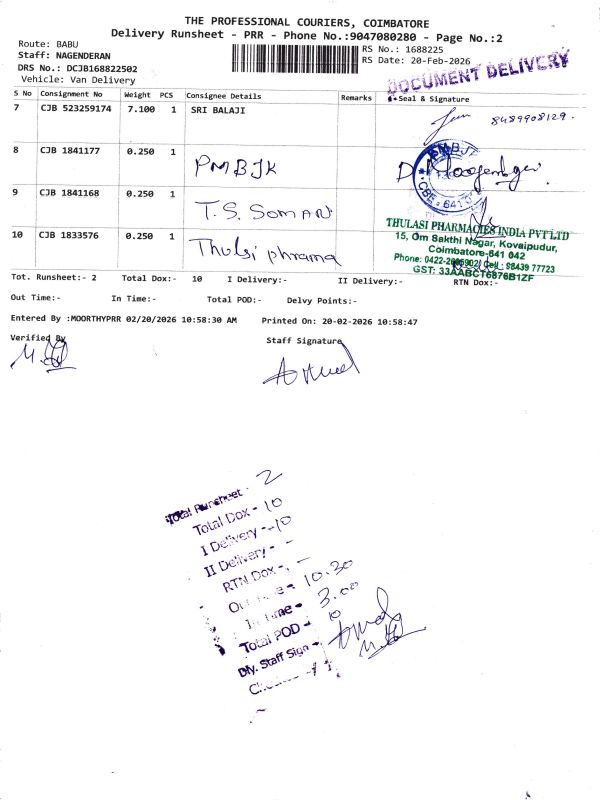 THE PROFESSIONAL COURIERS, COIMBATORE
Delivery Runsheet - PRR - Phone No.:9047080280 - Page No.:2
Route: BABU
Staff: NAGENDERAN
DRS No.: DCJB168822502
Vehicle: Van Delivery
RS No.: 1688225
RS Date: 20-Feb-2026
DOCUMENT DELIVERY
S No Consignment No Weight PCS Consignee Details Remarks Seal & Signature
7 CJB 523259174 7.100 1 SRI BALAJI 8489908129.
8 CJB 1841177 0.250 1 PMBJK
9 CJB 1841168 0.250 1 T.S. SOMAN
10 CJB 1833576 0.250 1 Thulsi phrama
THULASI PHARMACIES INDIA PVT LTD
15, Om Sakthi Nagar, Kovaipudur,
Coimbatore-641 042
Phone: 0422- Cell: 98439 77723
GST: 33AABCT6876B1ZF
Tot. Runsheet:- 2 Total Dox:- 10 I Delivery:- II Delivery:- RTN Dox:-
Out Time:- In Time:- Total POD:- Delvy Points:-
Entered By :MOORTHYPRR 02/20/2026 10:58:30 AM Printed On: 20-02-2026 10:58:47
Verified By Staff Signature
Total Runsheet - 2
Total Dox - 10
I Delivery - 10
II Delivery - -
RTN Dox - -
Out Time - 10.30
In Time - 3.00
Total POD - 10
Dly. Staff Sign -